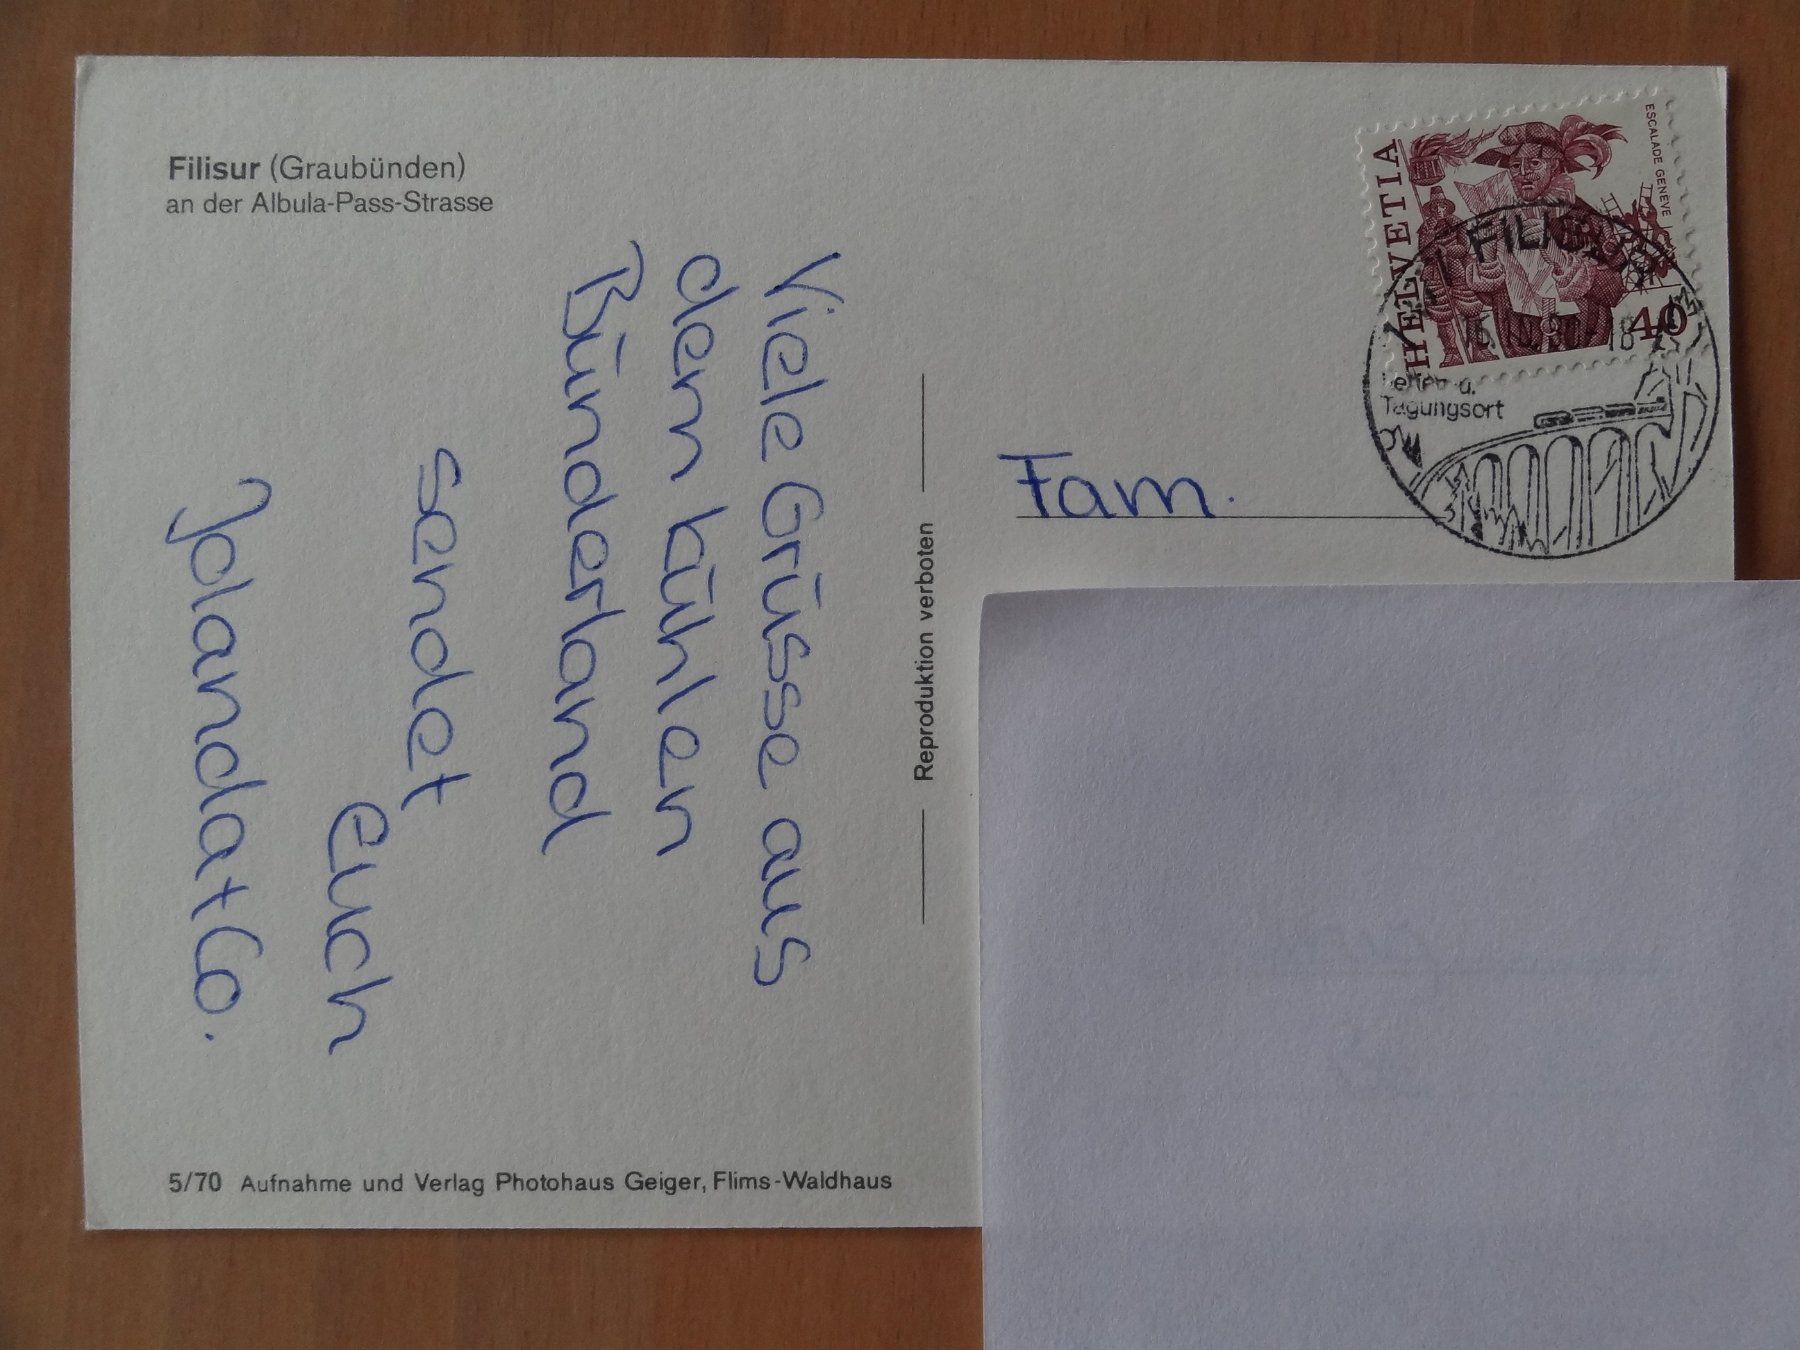 Filisur (Graubünden)
an der Albula-Pass-Strasse
Viele Grüsse aus
dem kühlen
Bünderland
sendet
euch
Jolanda + Co.
5/70 Aufnahme und Verlag Photohaus Geiger, Flims-Waldhaus
Reproduktion verboten
ESCALADE GENÈVE
HELVETIA
40
FILISUR
Ferien u.
Tagungsort
Fam.